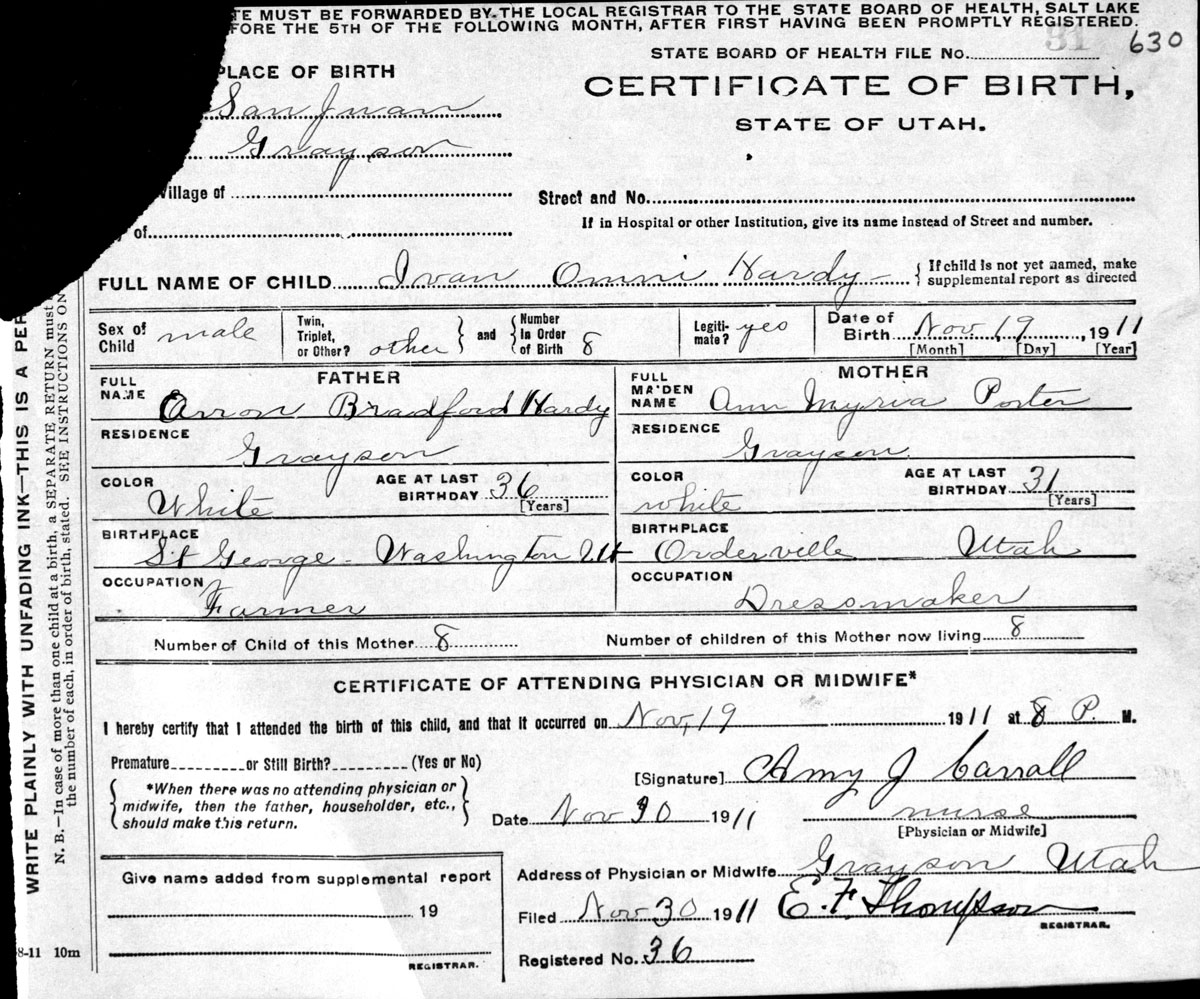 TE MUST BE FORWARDED BY THE LOCAL REGISTRAR TO THE STATE BOARD OF HEALTH, SALT LAKE
FORE THE 5TH OF THE FOLLOWING MONTH, AFTER FIRST HAVING BEEN PROMPTLY REGISTERED.
STATE BOARD OF HEALTH FILE No. 31 630
PLACE OF BIRTH
CERTIFICATE OF BIRTH,
San Juan
STATE OF UTAH.
Grayson
Village of
Street and No.
If in Hospital or other Institution, give its name instead of Street and number.
of
FULL NAME OF CHILD Ivan Omni Hardy
{ If child is not yet named, make
supplemental report as directed
Sex of Child male
Twin, Triplet, or Other? other } and { Number in Order of Birth 8
Legitimate? yes
Date of Birth Nov 19, 1911
[Month] [Day] [Year]
FATHER
FULL NAME Arron Bradford Hardy
MOTHER
FULL MAIDEN NAME Ann Myria Porter
RESIDENCE Grayson
RESIDENCE Grayson
COLOR White
AGE AT LAST BIRTHDAY 36 [Years]
COLOR white
AGE AT LAST BIRTHDAY 31 [Years]
BIRTHPLACE St George - Washington Ut
BIRTHPLACE Orderville Utah
OCCUPATION Farmer
OCCUPATION Dressmaker
Number of Child of this Mother 8
Number of children of this Mother now living 8
CERTIFICATE OF ATTENDING PHYSICIAN OR MIDWIFE*
I hereby certify that I attended the birth of this child, and that it occurred on Nov, 19 1911 at 8 P. M.
Premature or Still Birth? (Yes or No)
[Signature] Amy J Carroll
{ *When there was no attending physician or
midwife, then the father, householder, etc.,
should make this return. }
Date Nov 30 1911
nurse
[Physician or Midwife]
Address of Physician or Midwife Grayson Utah
Give name added from supplemental report
19
REGISTRAR.
Filed Nov 30 1911 E. F. Thompson
REGISTRAR.
Registered No. 36
WRITE PLAINLY WITH UNFADING INK—THIS IS A PER
N. B.—In case of more than one child at a birth, a SEPARATE RETURN must
the number of each, in order of birth, stated. SEE INSTRUCTIONS ON
8-11 10m